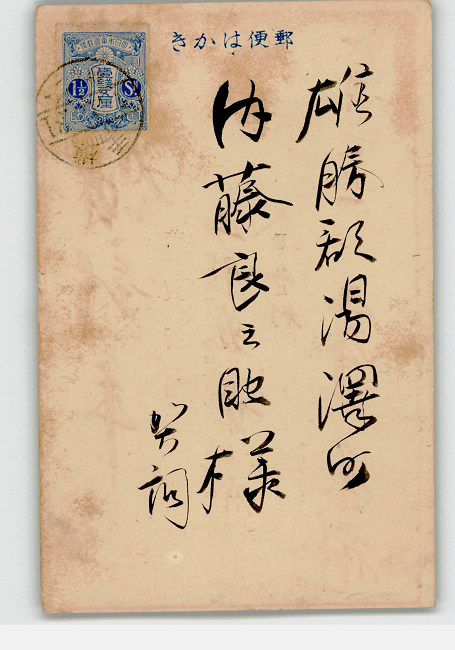 郵便はかき
雄勝郡湯澤町
内藤良之助様
賀詞
壹錢五厘
1½ Sn.